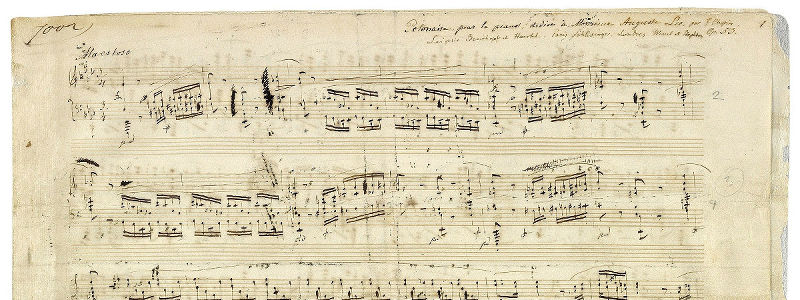 7002
Polonaise pour le piano dédiée à Monsieur Auguste Léo par F. Chopin
1
Leipsic Breitkopf et Härtel. Paris Schlesinger. Londres Wessel et Stapleton Op. 53.
Maestoso
2